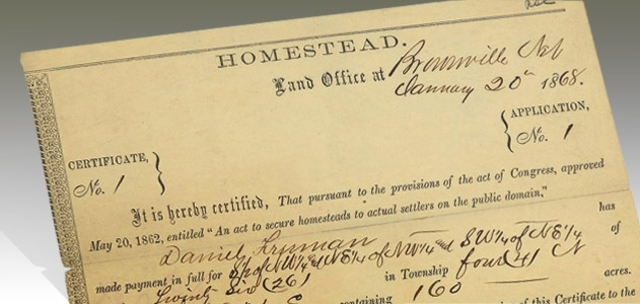 HOMESTEAD.
Land Office at Brownville Neb
January 20th 1868.
CERTIFICATE, No. 1
APPLICATION, No. 1
It is hereby certified, That pursuant to the provisions of the act of Congress, approved
May 20, 1862, entitled "An act to secure homesteads to actual settlers on the public domain,"
Daniel Freeman has
made payment in full for S½ of NW¼ and NE¼ of NW¼ and SW¼ of NE¼ of
Twenty Six (26) in Township four (4) N
containing 160 acres.
of this Certificate to the